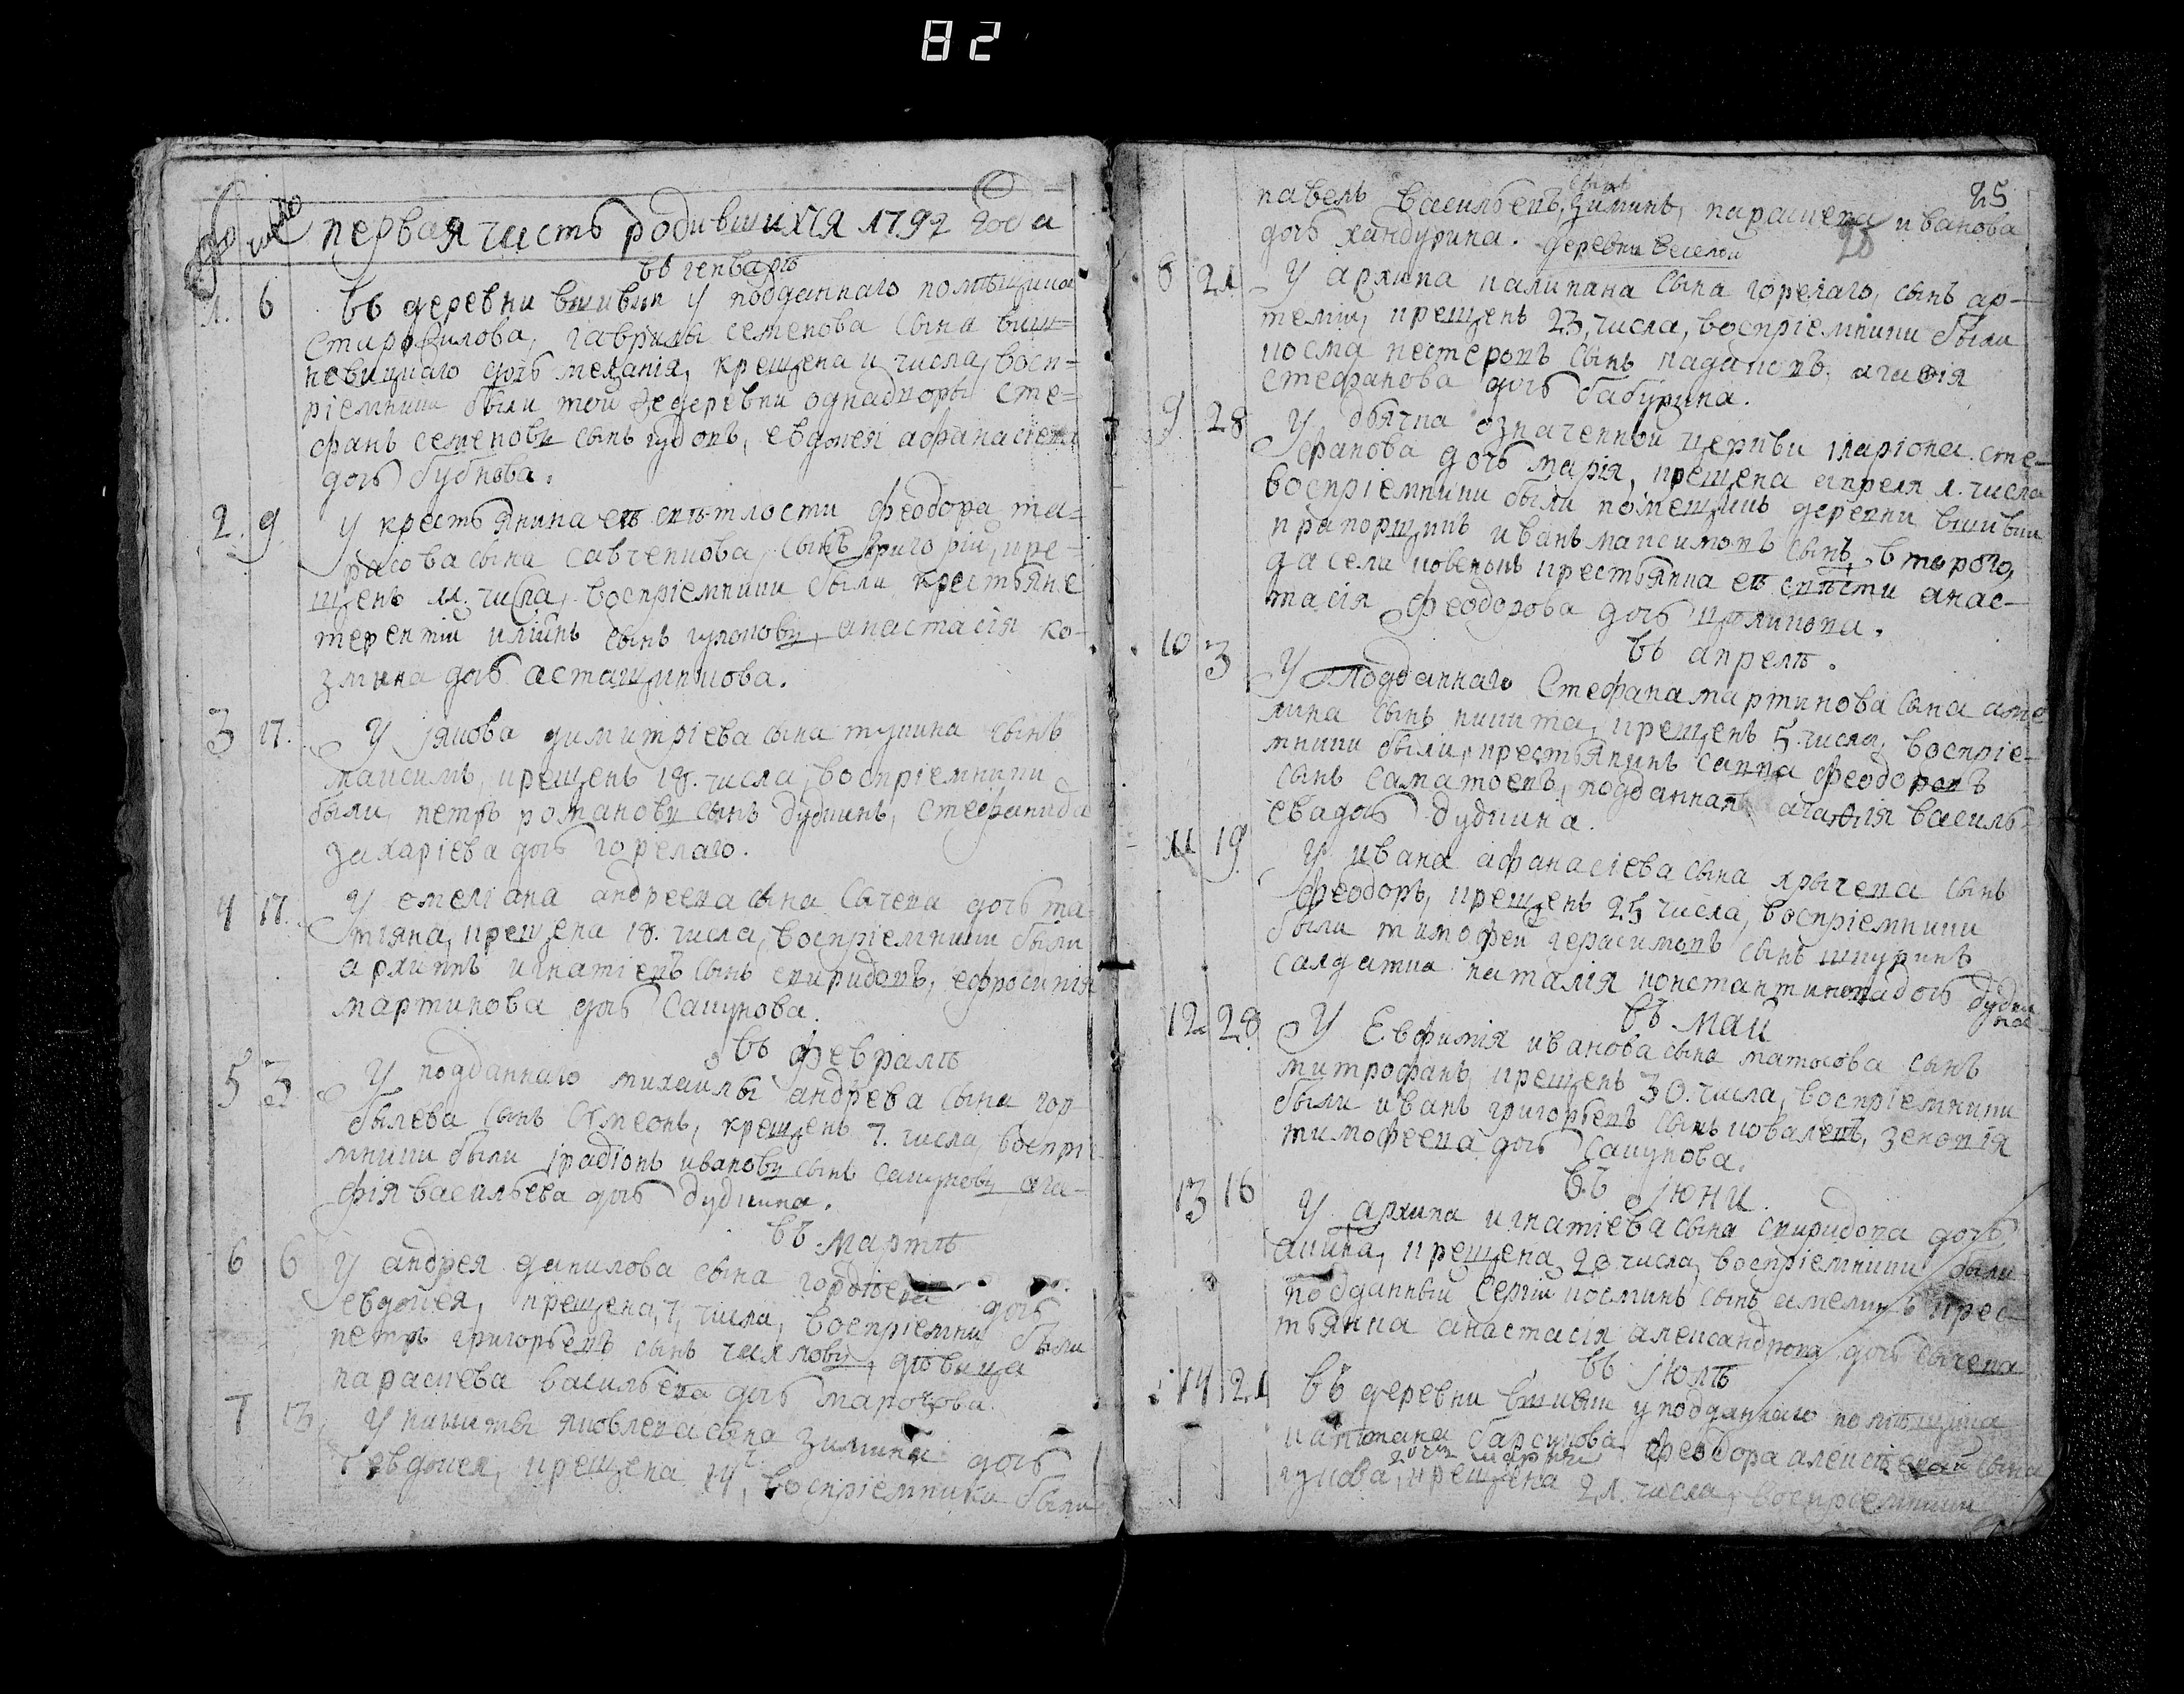 82
число первая часть родившихся 1792 года
въ генварѣ
1. 6 въ деревни вшивки у подданнаго помѣщика
Старофилова, гаврилы семенова сына виш-
невицкаго дочь меланія, крещена 11 числа, восп-
ріемники были той же деревни однадворы Сте-
фанъ семеновъ сынъ гудовъ, евдокея афанасиева
дочь бубнова.
2. 9. У крестьянина ев свѣтлости Феодора та-
расова сына савченкова, сынъ григорій, кре-
щенъ 11. числа, воспріемники были крестьяне
терентій иліинъ сынъ гуковъ, анастасія ко-
змина дочь астащинкова.
3 17. У іякова димитріева сына тукина сынъ
максимъ, крещенъ 18. числа, воспріемники
были, петръ романовъ сынъ дудкинъ, стефанида
захаріева дочь горелаго.
4 17. У емеліана андреева сына сычева дочь та-
тіяна, крещена 18. числа, воспріемники были
архипъ игнатіевъ сынъ спиридовъ, ефросинія
мартинова дочь сапунова.
въ февралѣ
5 3 У подданнаго михаилы андрѣева сына гор-
былева сынъ Сѵмеонъ, крещенъ 7. числа, воспріе-
мники были іродіонъ ивановъ сынъ сапуновъ ага-
фія васильева дочь дудкина.
въ мартѣ
6 6 У андрея данилова сына гордѣева дочь
евдокея, крещена, 7, числа, воспріемни были
петръ григорьевъ сынъ чихловъ, дѣвица
парасиева васильева дочь марочова.
7 13 У никиты яковлева сына зимина дочь
евдокея, крещена 14, воспріемники были
25
павелъ васильевъ сынъ зиминъ, параскева иванова
дочь хандурина. деревни веселой 25
8 21 У архипа калинина сына горелаго, сынъ ар-
темій, крещенъ 23, числа, воспріемники были
косма нестеровъ сынъ кадаковъ, агафія
стефанова дочь бабурина.
9 28 У дьячка означенной церкви іларіона сте-
фанова дочь марія, крещена апреля 1. числа
воспріемники были помещикъ деревни вшивки
прапорщикъ иванъ максимовъ сынъ, второго,
да села крестьянка ев свѣтсти анас-
тасія феодорова дочь куликова.
въ апрелѣ.
10 3 У Подданнаго Стефана мартинова сына аме-
лина сынъ никита, крещенъ 5. числа, воспріе-
мники были, крестьянинъ савва феодоровъ
сынъ саматоевъ, подданная агафія василь-
ева дочь дудкина.
11 19 У ивана афанасіева сына хрычева сынъ
феодоръ, крещенъ 25 числа, воспріемники
были тимофей герасимовъ сынъ шкуринъ
салдатка наталія константинова дочь дудки
на
въ маи
12 28 У Евфимія иванова сына матюсова сынъ
митрофанъ, крещенъ 30. числа, воспріемники
были иванъ григорьевъ сынъ ковалевъ, зеновія
тимофеева дочь сапунова.
въ іюни.
13 16 У архипа игнатіева сына спиридова дочь
акилина, крещена 20 числа, воспріемники были
подданный сергій косминъ сынъ амелинъ крес-
тьянка анастасія александрова дочь сычева
въ іюлѣ
14 21 въ деревни вшивки у подданнаго помѣщика
капитана барсукова феодора алексѣева сына
гукова, дочь марія крещена 21. числа, воспріемники